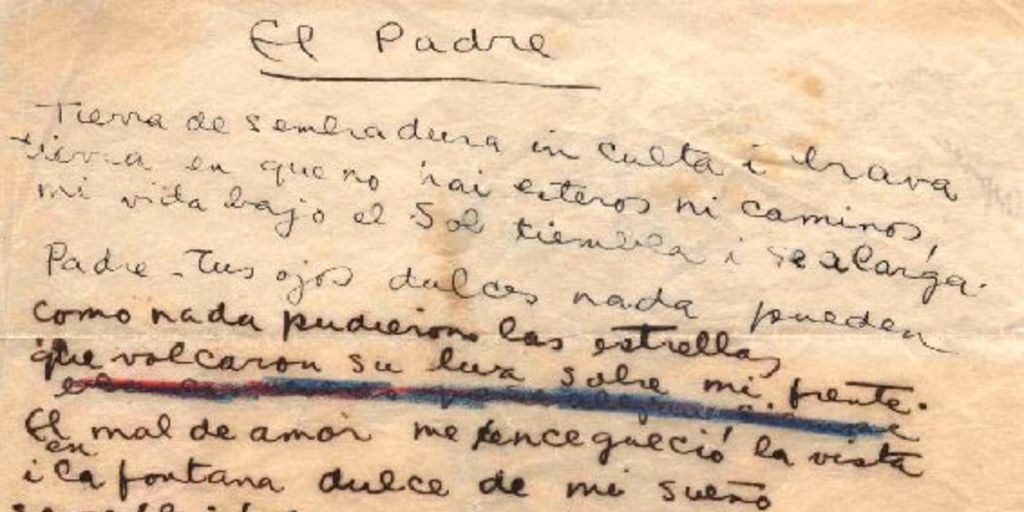 El Padre
Tierra de sembradura inculta i brava
tierra en que no hai esteros ni caminos,
mi vida bajo el Sol tiembla i se alarga.
Padre - Tus ojos dulces nada pueden
como nada pudieron las estrellas
que volcaron su luz sobre mi frente.
El mal de amor me encegueció la vista
i en la fontana dulce de mi sueño